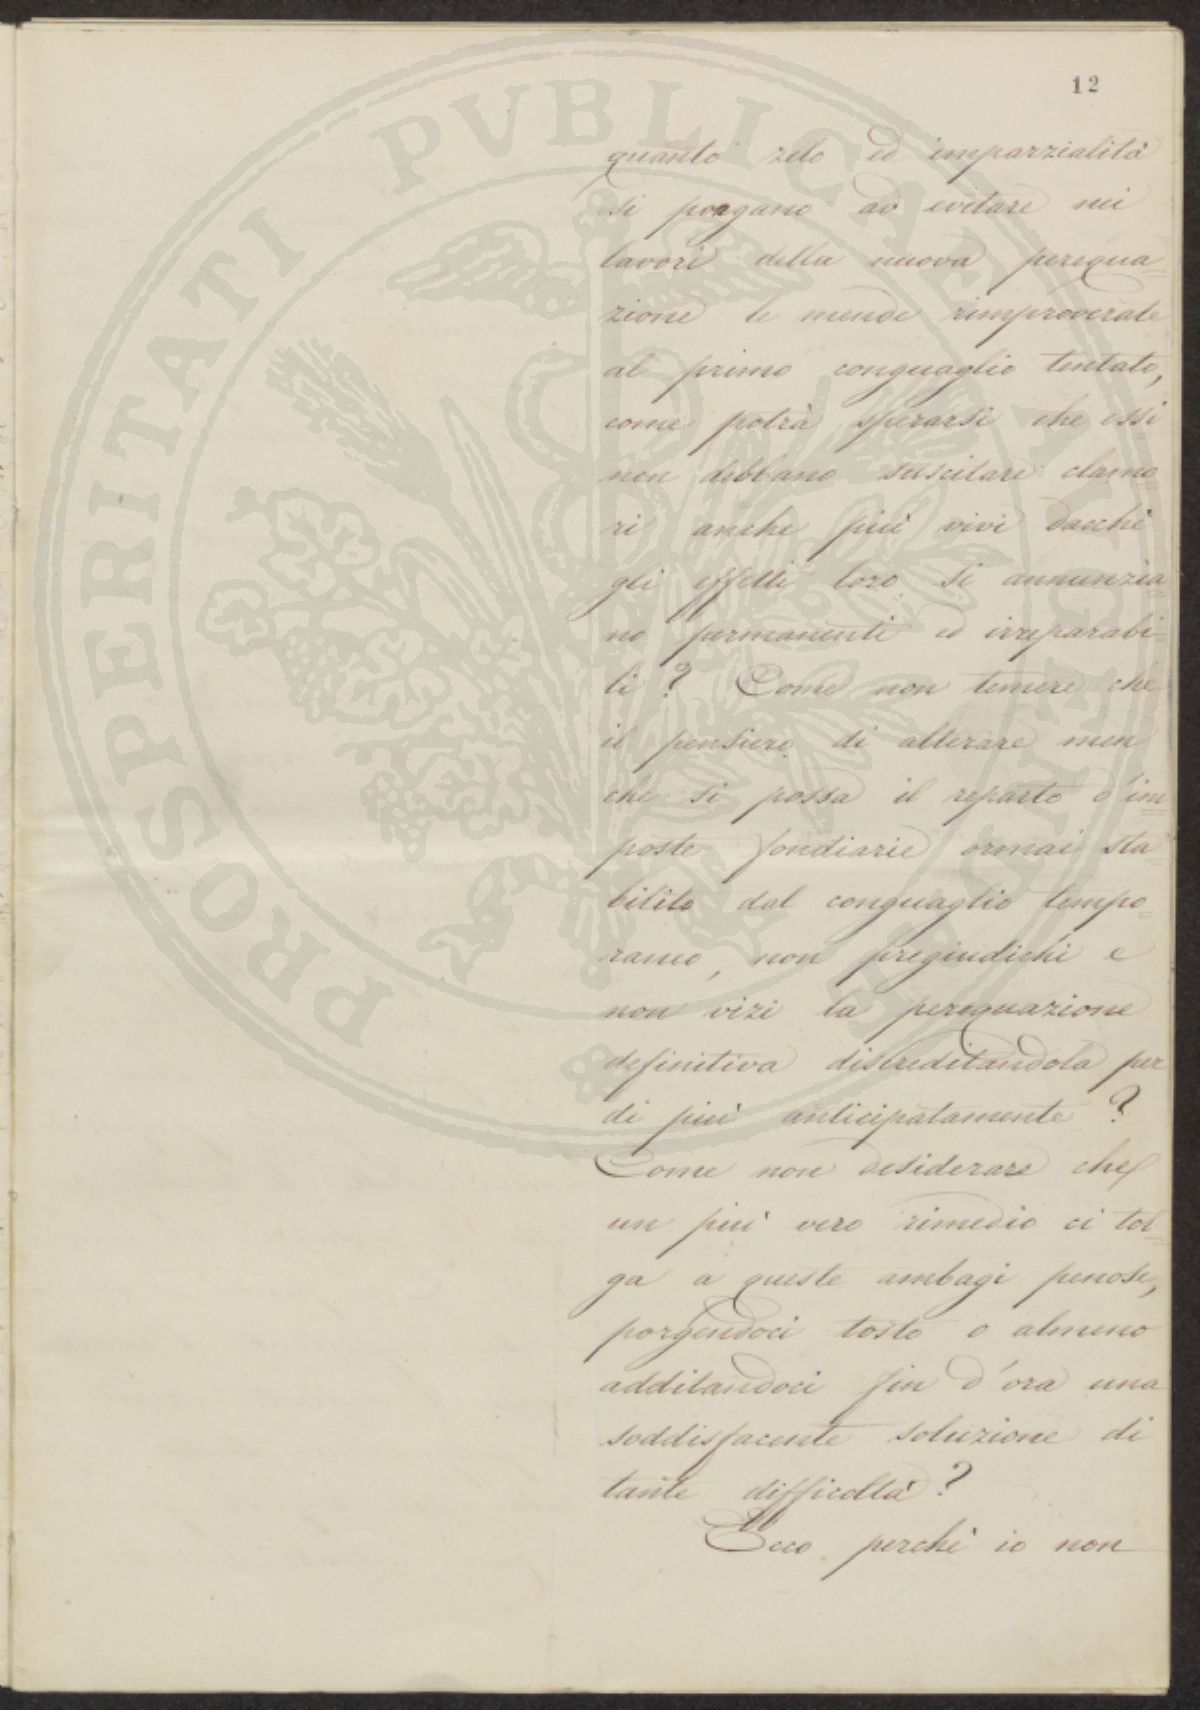 12
PROSPERITATI PVBLICAE
quanto zelo ed imparzialità
si porgano ad evitare nei
lavori della nuova perequa=
zione le mende rimproverate
al primo conguaglio tentato,
come potrà sperarsi che essi
non debbano suscitare clamo=
ri anche più vivi dacchè
gli effetti loro si annunzia=
no permanenti ed irreparabi=
li? Come non temere che
il pensiero di alterare men
che si possa il reparto d'im=
poste fondiarie ormai sta=
bilito dal conguaglio tempo=
raneo, non pregiudichi e
non vizi la perequazione
definitiva discreditandola per
di più anticipatamente?
Come non desiderare che
un più vero rimedio ci tol=
ga a queste ambagi penose,
porgendoci tosto o almeno
additandoci fin d'ora una
soddisfacente soluzione di
tante difficoltà?
Ecco perchè io non